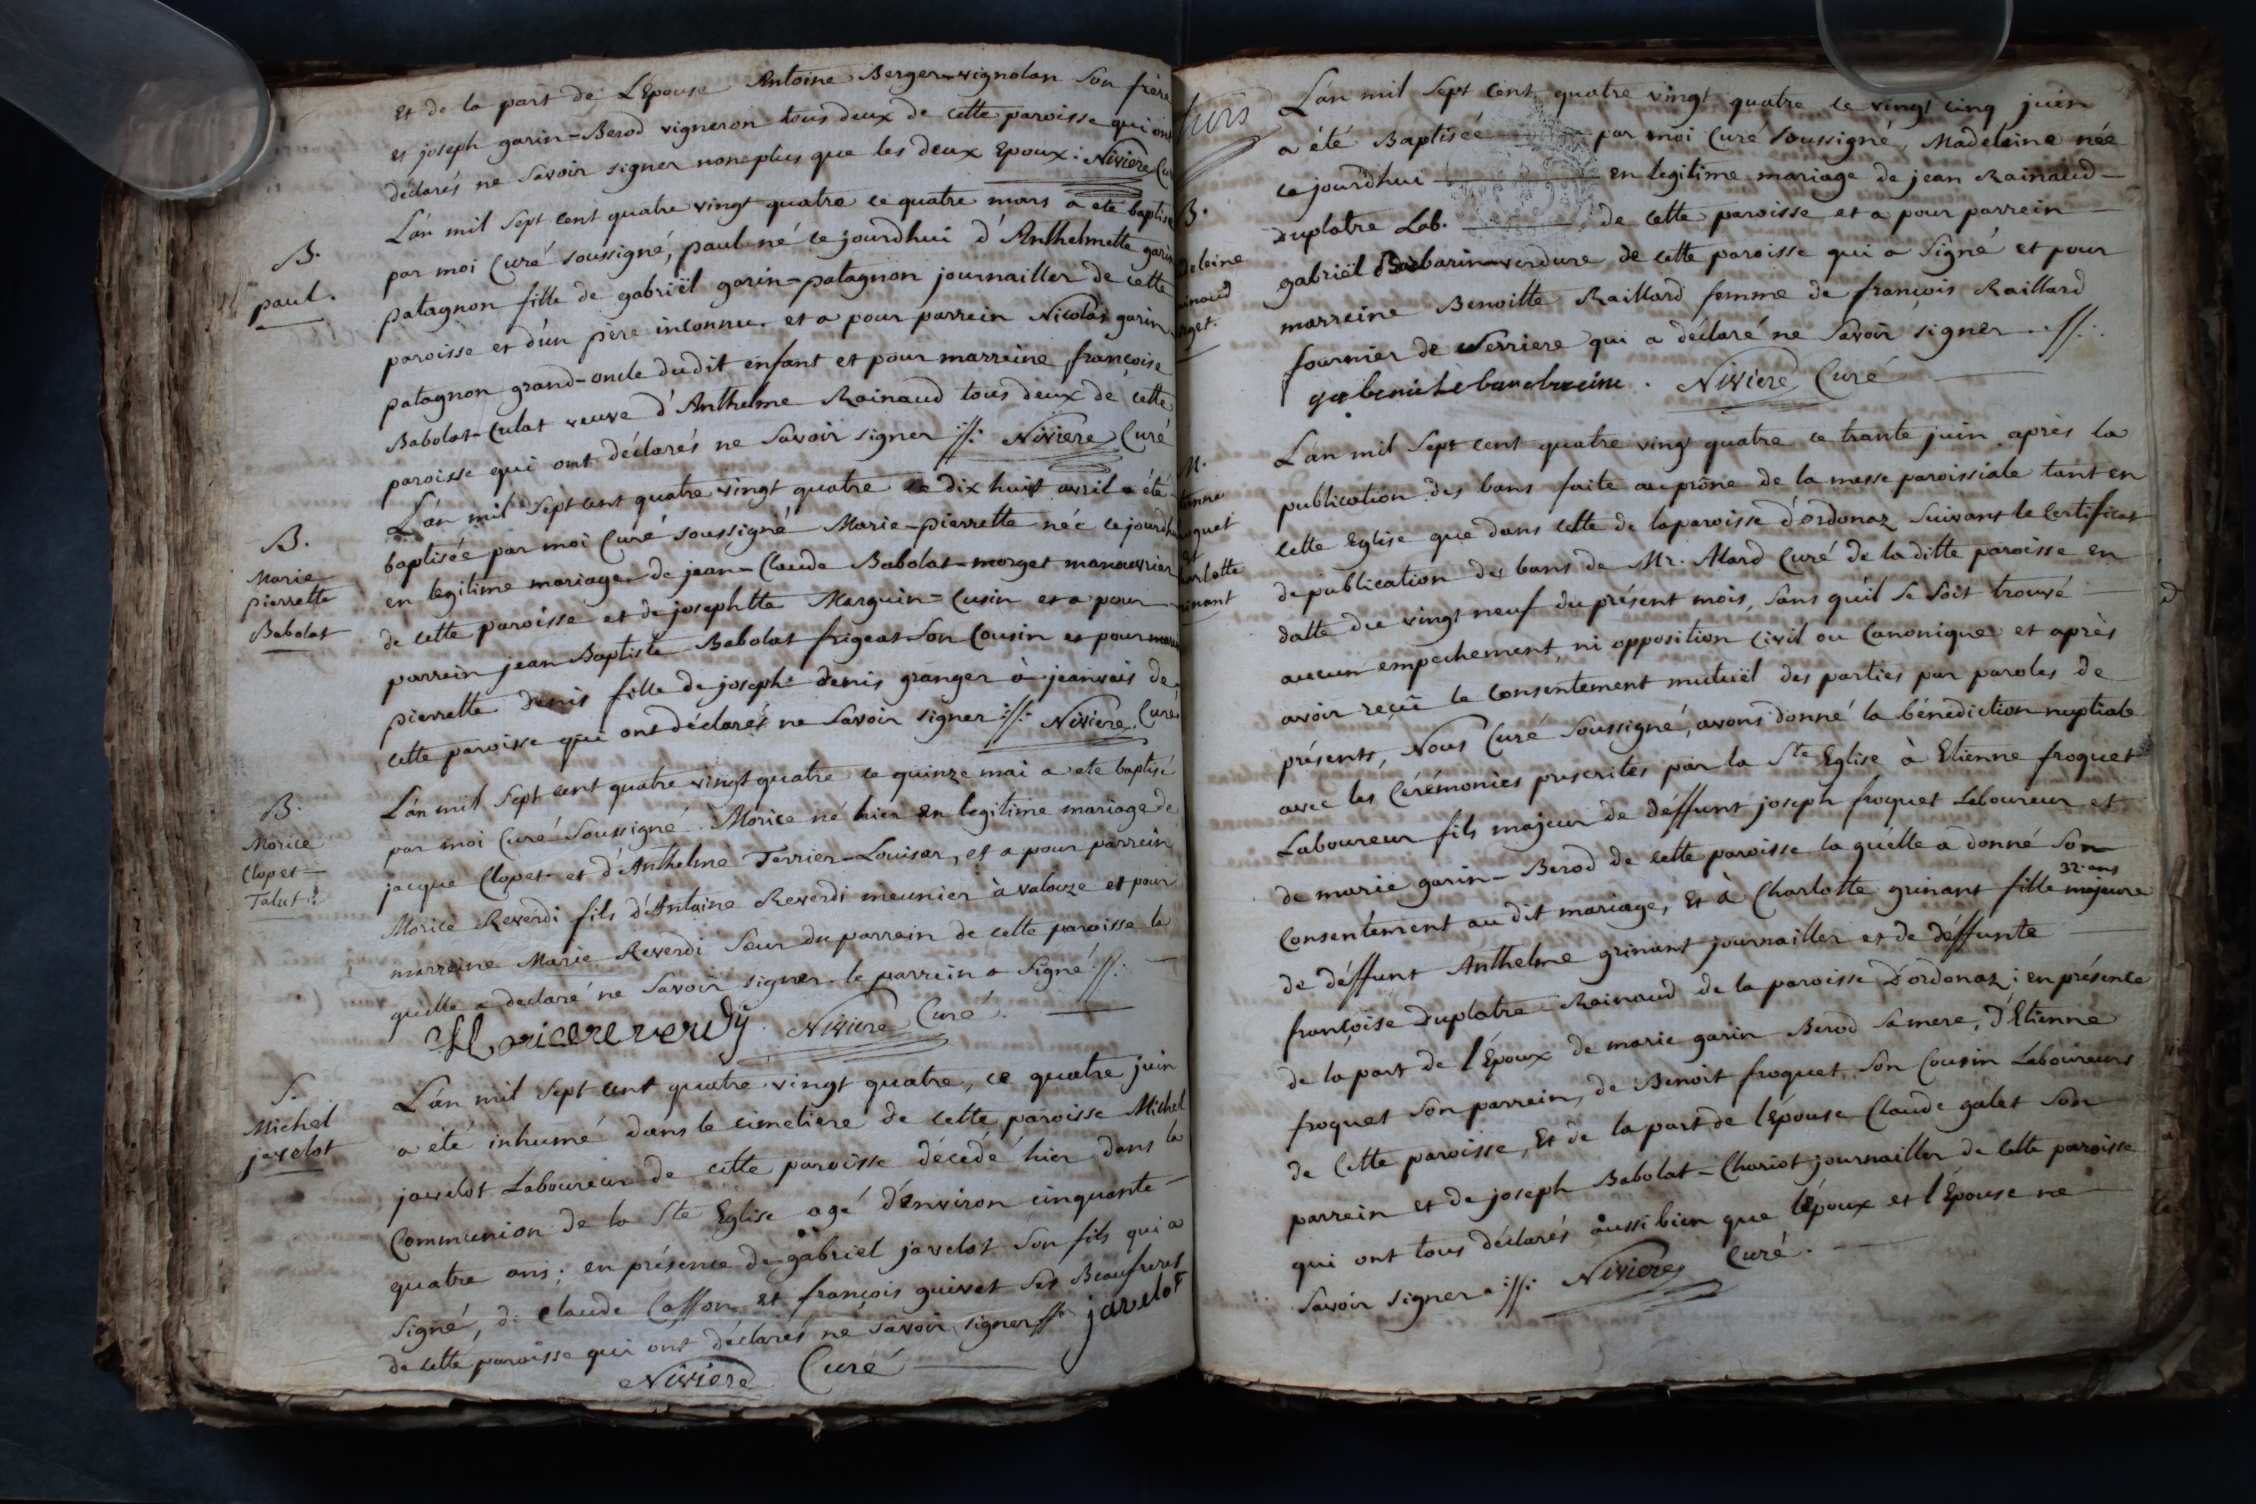 Et de la part de L'Epouse Antoine Berger-vignolan son frère
et joseph garin-Berod vigneron tous deux de cette paroisse qui ont
déclarés ne savoir signer nonplus que les deux Epoux :. Niviere Cu
L'an mil sept cent quatre vingt quatre ce quatre mars a eté baptisé
B.
paul.
par moi Curé soussigné, paul né ce jourdhui d'Anthelmette garin
patagnon fille de gabriël garin-patagnon journailler de cette
paroisse et d'un père inconnu et a pour parrein Nicolas garin
patagnon grand-oncle dudit enfant et pour marreine françoise
Babolat-Culat veuve d'Anthelme Rainaud tous deux de cette
paroisse qui ont déclarés ne savoir signer :/: Niviere Curé
B.
Marie
pierrette
Babolat
L'an mil sept cent quatre vingt quatre ce dix huit avril a été
baptisée par moi Curé soussigné Marie-pierrette née ce jourdh
en legitime mariage de jean-Claude Babolat-morget manouvrier
de cette paroisse et de josephtte Marguin-Cusin et a pour
parrein jean Baptiste Babolat frigeat son Cousin et pour marr
pierrette denis fille de joseph denis granger à jeanvais de
cette paroisse qui ont déclarés ne savoir signer :/: Niviere Curé
B.
Morice
Clopet-
Talut :
L'an mil sept cent quatre vingt quatre ce quinze mai a eté baptisé
par moi Curé soussigné Morice né hier en legitime mariage de
jacque Clopet et d'Anthelme Terrier-Louisar, et a pour parrein
Morice Reverdi fils d'Antoine Reverdi meunier à valouze et pour
marreine Marie Reverdi Sœur du parrein de cette paroisse la
quelle a declaré ne savoir signer le parrein a signé :/:
Moricereverdy Niviere Curé.
S.
Michel
javelot
L'an mil sept cent quatre vingt quatre, ce quatre juin
a été inhumé dans le cimetiere de cette paroisse Michel
javelot Laboureur de cette paroisse décédé hier dans la
Communion de la Ste Eglise agé d'environ cinquante-
quatre ans ; en présence de gabriel javelot son fils qui a
signé, de Claude Casson et françois guivet ses Beaufreres
de cette paroisse qui ont déclarés ne savoir signer :/: javelot
Niviere Curé
L'an mil sept cent quatre vingt quatre ce vingt cinq juin
a été Baptisée par moi Curé soussigné, Madeleine née
ce jourdhui en legitime mariage de jean Rainaud-
B.
deleine
inaud
rget.
Duplatre Lab. , de cette paroisse et a pour parrein
gabriël Barbarin-verdure de cette paroisse qui a signé et pour
marreine Benoitte Raillard femme de françois Raillard
fournier de Serriere qui a déclaré ne savoir signer :/:
Niviere Curé
M.
tienne
oquet
et
arlotte
inant
L'an mil sept cent quatre vingt quatre ce trante juin après la
publication des bans faite au prône de la messe paroissiale tant en
cette Eglise que dans cette de la paroisse d'ordonaz suivant le Certificat
de publication des bans de Mr. Alard Curé de la ditte paroisse en
datte du vingt neuf du présent mois, sans qu'il se soit trouvé
aucun empechement, ni opposition Civil ou Canonique et après
avoir reçû le Consentement mutuël des parties par paroles de
présents, Nous Curé soussigné, avons donné la bénediction nuptiale
avec les Cérémonies prescrites par la Ste Eglise à Etienne froquet
Laboureur fils majeur de déffunt joseph froquet Laboureur et
de marie garin-Berod de cette paroisse la quélle a donné son
Consentement au dit mariage, Et à Charlotte grinant fille majeure
32. ans
de déffunt Anthelme grinant journailler et de déffunte
françoise Duplatre Rainaud de la paroisse D'ordonaz ; en présence
de la part de l'Epoux de marie garin Berod sa mere, d'Etienne
froquet son parrein, de Benoit froquet son Cousin Laboureurs
de Cette paroisse, Et de la part de l'épouse Claude galet son
parrein et de joseph Babolat-Chariot journailler de cette paroisse
qui ont tous déclarés aussi bien que l'époux et l'Epouse ne
savoir signer :/: Niviere Curé.